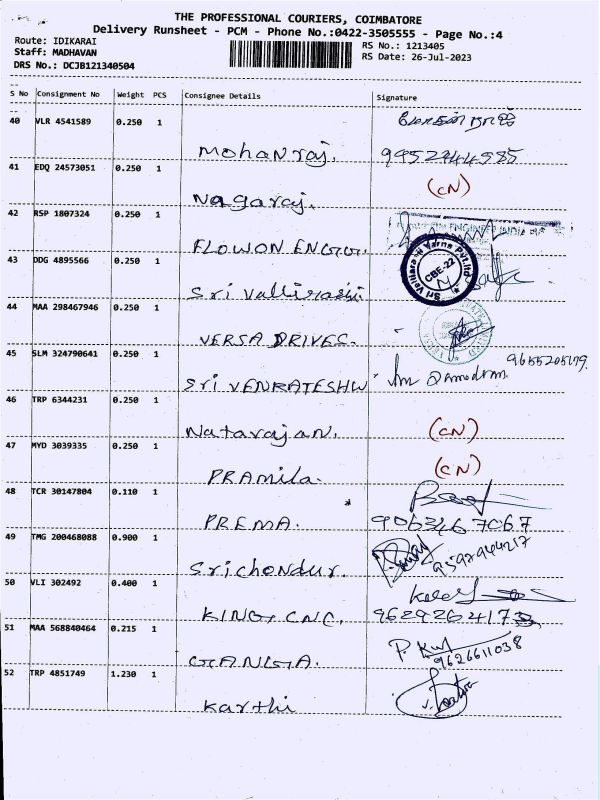 THE PROFESSIONAL COURIERS, COIMBATORE
Delivery Runsheet - PCM - Phone No.:0422-3505555 - Page No.:4
Route: IDIKARAI
Staff: MADHAVAN
DRS No.: DCJB121340504
RS No.: 1213405
RS Date: 26-Jul-2023
S No Consignment No Weight PCS Consignee Details Signature
40 VLR 4541589 0.250 1 Mohanraj.
41 EDQ 24573051 0.250 1 Nagaraj. (CN)
42 RSP 1807324 0.250 1 FLOWON ENGG.
43 DDG 4895566 0.250 1 Sri
CBE-22
44 MAA 298467946 0.250 1 VERSA DRIVES.
45 SLM 324790641 0.250 1 Sri VENKATESHW
46 TRP 6344231 0.250 1 Natarajan. (CN)
47 MYD 3039335 0.250 1 PRAmila. (CN)
48 TCR 30147804 0.110 1 PREMA. * 9063467067
49 TMG 200468088 0.900 1 Srichendur.
50 VLI 302492 0.400 1 KING, CNC.
51 MAA 568840464 0.215 1 GANGA. 9626611038
52 TRP 4851749 1.230 1 Karthi